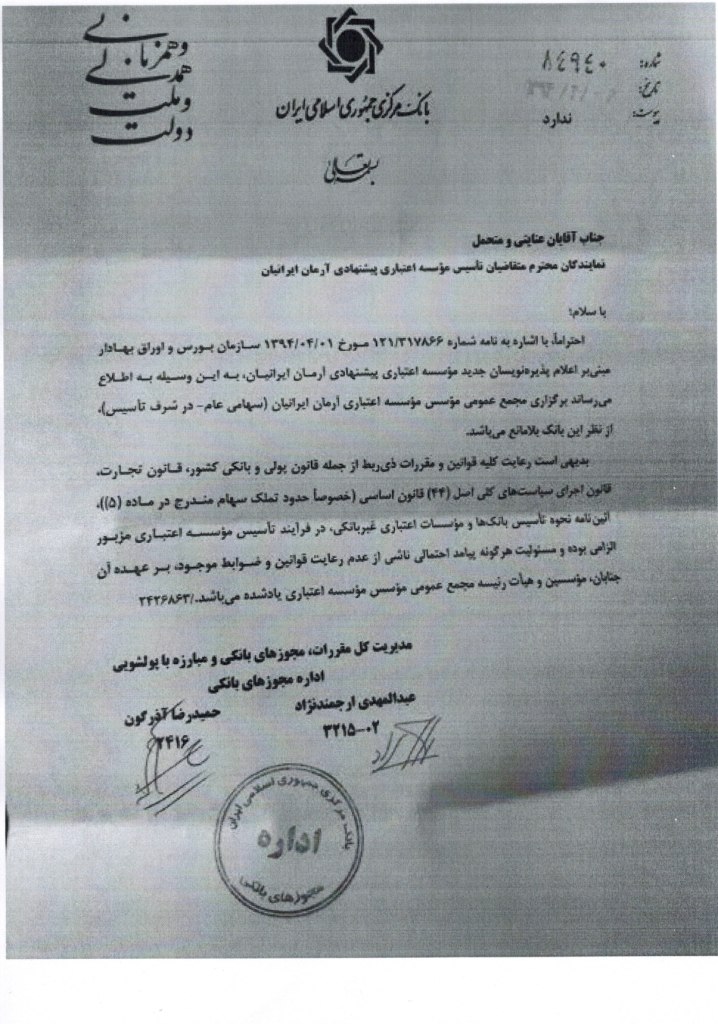 دولت
وملت
همدلی
وهمزبانی
بانک مرکزی جمهوری اسلامی ایران
بسمه تعالی
شماره: ۸۴۹۴۰
تاریخ:
پیوست: ندارد
جناب آقایان عنایتی و متحمل
نمایندگان محترم متقاضیان تأسیس مؤسسه اعتباری پیشنهادی آرمان ایرانیان
با سلام؛
احتراماً، با اشاره به نامه شماره ۱۲۱/۳۱۷۸۶۶ مورخ ۱۳۹۴/۰۴/۰۱ سازمان بورس و اوراق بهادار
مبنی‌بر اعلام پذیره‌نویسان جدید مؤسسه اعتباری پیشنهادی آرمان ایرانیان، به این وسیله به اطلاع
می‌رساند برگزاری مجمع عمومی مؤسس مؤسسه اعتباری آرمان ایرانیان (سهامی عام- در شرف تأسیس)،
از نظر این بانک بلامانع می‌باشد.
بدیهی است رعایت کلیه قوانین و مقررات ذی‌ربط از جمله قانون پولی و بانکی کشور، قانون تجارت،
قانون اجرای سیاست‌های کلی اصل (۴۴) قانون اساسی (خصوصاً حدود تملک سهام مندرج در ماده (۵))،
آئین‌نامه نحوه تأسیس بانک‌ها و مؤسسات اعتباری غیربانکی، در فرآیند تأسیس مؤسسه اعتباری مزبور
الزامی بوده و مسئولیت هرگونه پیامد احتمالی ناشی از عدم رعایت قوانین و ضوابط موجود، بر عهده آن
جنابان، مؤسسین و هیأت رئیسه مجمع عمومی مؤسس مؤسسه اعتباری یادشده می‌باشد./۲۴۲۶۸۶۳
مدیریت کل مقررات، مجوزهای بانکی و مبارزه با پولشویی
اداره مجوزهای بانکی
عبدالمهدی ارجمندنژاد
حمیدرضا آذرگون
۳۲۱۵-۰۲
۲۴۱۶
بانک مرکزی جمهوری اسلامی ایران
اداره
مجوزهای بانکی